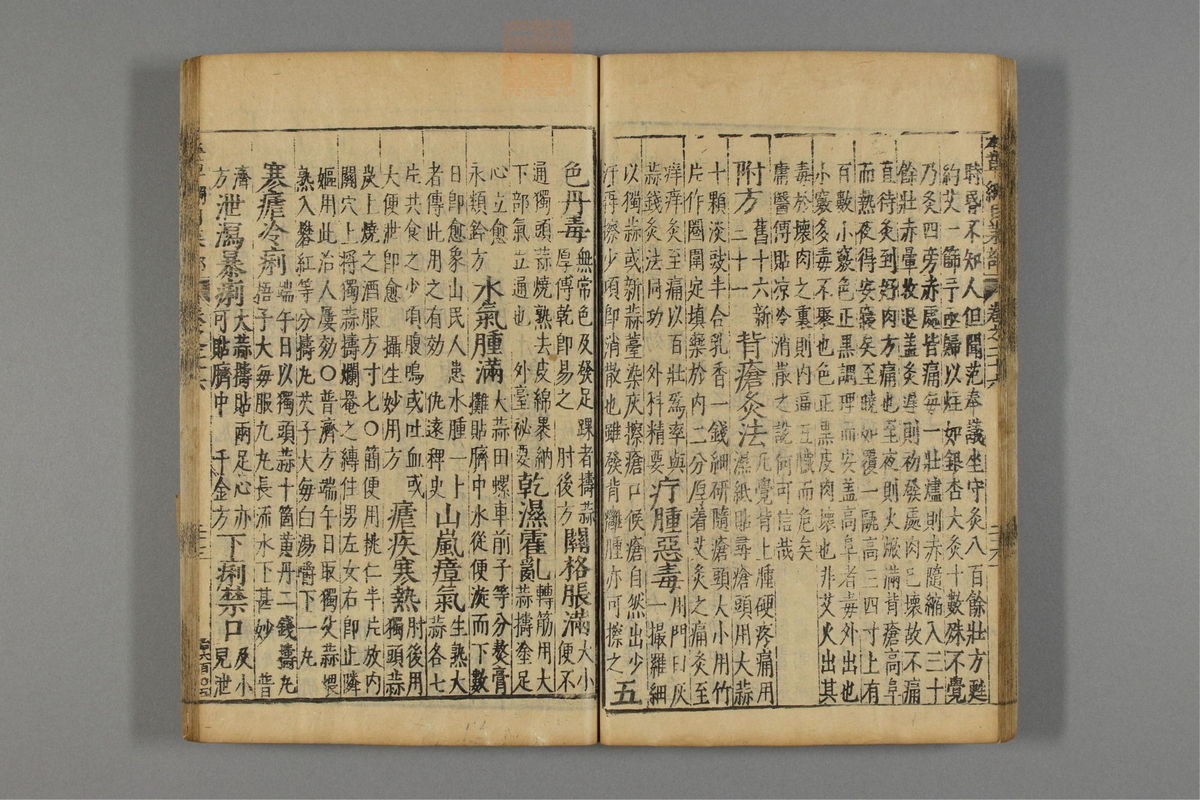 時昏不知人但聞范奉議坐守灸八百餘壯方甦
約艾一篩于亟歸以炷如銀杏大灸十數殊不覺
乃灸四旁赤處皆痛每一壯爐則赤隨縮入三十
餘壯赤暈收退蓋灸遲則初發處肉已壞故不痛
直待灸到好肉方痛也至夜則火焮滿背瘡高阜
而熱夜得安寢矣至曉如覆一甌高三四寸上有
百數小竅色正黑調理而安蓋高阜者毒外出也
小竅多毒不聚也色正黑皮肉壞也非艾火出其
毒於壞肉之裏則內逼五臟而危矣
庸醫傅貼凉冷消散之說何可信哉
附方 舊十六新二十一 背瘡灸法 凡覺背上腫硬疼痛用濕紙貼尋瘡頭用大蒜
十顆淡豉半合乳香一錢細研隨瘡頭大小用竹
片作圈圍定填藥於內二分厚着艾灸之痛灸至
痒痒灸至痛以百壯爲率與
蒜錢灸法同功 外科精要 疔腫惡毒 用門臼灰一撮羅細
以獨蒜或新蒜薹染灰擦瘡口候瘡自然出少
汗再擦少頃卽消散也雖發背癰腫亦可擦之 五
色丹毒 無常色及發足踝者擣蒜厚傅乾卽易之 肘後方 關格脹滿 大小便不
通獨頭蒜燒熟去皮綿裹納
下部氣立通也 外臺祕要 乾濕霍亂 轉筋用大蒜擣塗足
心立愈
永類鈐方 水氣腫滿 大蒜田螺車前子等分熬膏攤貼臍中水從便漩而下數
日卽愈象山民人患水腫一卜
者傳此用之有效 仇遠稗史 山嵐瘴氣 生熟大蒜各七
片共食之少頃腹鳴或吐血或
大便泄卽愈 攝生妙用方 瘧疾寒熱 肘後用獨頭蒜
炭上燒之酒服方寸七○簡便用桃仁半片放內
關穴上將獨蒜擣爛罨之縛住男左女右卽止隣
嫗用此治人屢効○普濟方端午日取獨头蒜煨
熟入礬紅等分擣丸芡子大每白湯嚼下一丸
寒瘧冷痢 端午日以獨頭蒜十箇黃丹二錢擣丸梧子大每服九丸長流水下甚妙 普
濟方 泄瀉暴痢 大蒜擣貼兩足心亦可貼臍中 千金方 下痢禁口 及小見泄